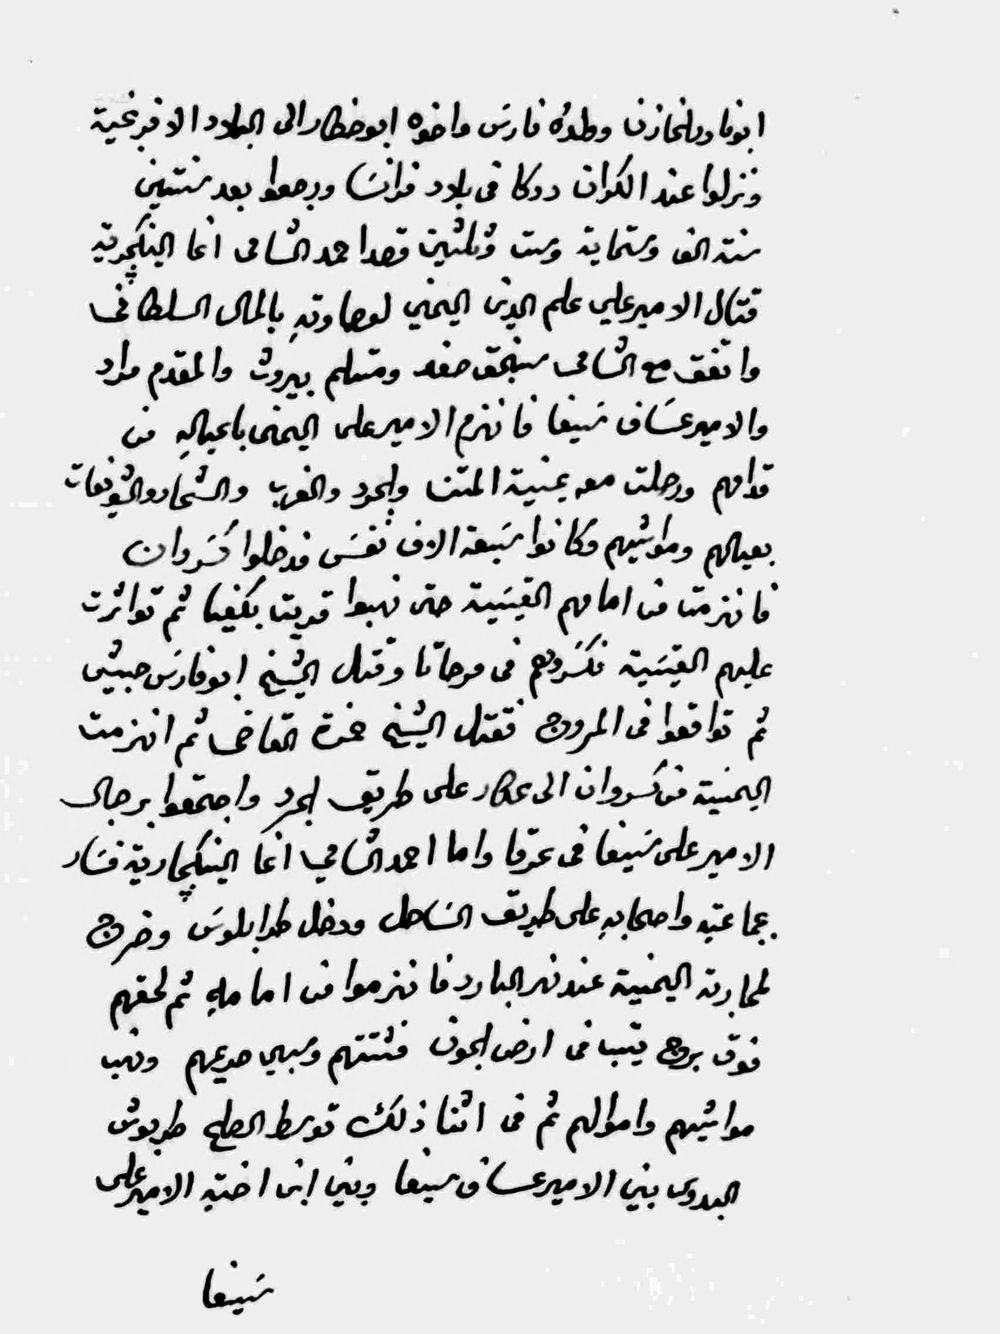 ابو نادر الخازن وولده فارس واخوه ابو خطار الى البلاد الافرنجية
ونزلوا عند الكران دوكا فى بلاد فرانسا ورجعوا بعد سنتين
سنة الف وستماية وست وثلثين قصد احمد الشامى اغا الينكجرية
قتال الامير علي علم الدين اليمني لعصاوته بالمال السلطانى
واتفق مع الشامى سنجق صفد ومتسلم بيروت والمقدم مراد
والامير عساف سيفا فانهزم الامير على اليمنى باعياله من
قدامهم ورحلت معه يمنية المتن والجرد والغرب والشحار والشويفات
بعيالهم ومواشيهم وكانوا سبعة الاف نفس فدخلوا كسروان
فانهزمت من امامهم القيسية حتى نهبوا قرية بكفيا ثم تواترت
عليهم القيسية فكسروهم فى مرحاتا وقتل الشيخ ابو فارس حبيش
ثم تواقعوا فى المروج فقتل الشيخ القاضى ثم انهزمت
اليمنية من كسروان الى عكار على طريق الجرد واجتمعوا برجال
الامير على سيفا فى عرقا واما احمد الشامي اغا الينكجارية فسار
بجماعته واصحابه على طريق الساحل ودخل طرابلوس وخرج
لمحاربة اليمنية عند نهر البارد فانهزموا من امامه ثم لحقهم
فوق بروج فى ارض الجون فشتتهم وسبى حريمهم ونهب
مواشيهم واموالهم ثم فى اثنا ذلك توسط الصلح طربوش
البدوى بين الامير عساف سيفا وبين ابن اخته الامير على
سيفا